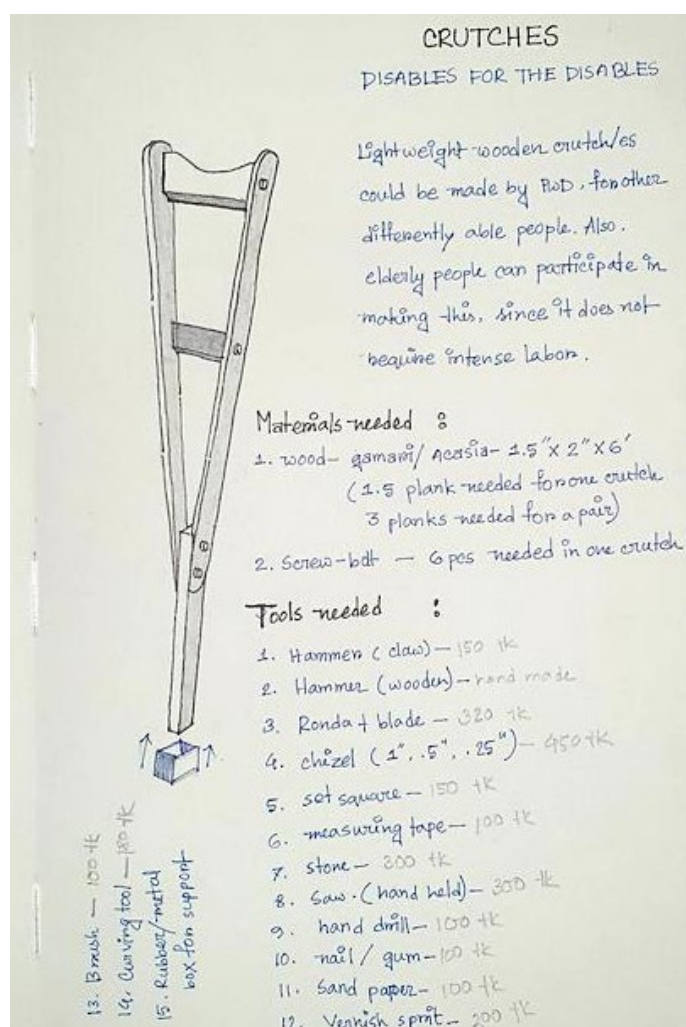 CRUTCHES
DISABLES FOR THE DISABLES
Lightweight wooden crutch/es
could be made by PWD, for other
differently able people. Also.
elderly people can participate in
making this, since it does not
require intense labor.
Materials needed :
1. wood- gamari/ Acasia- 1.5"x 2"x 6'
(1.5 plank needed for one crutch
3 planks needed for a pair)
2. Screw-bolt — 6 pcs needed in one crutch
Tools needed :
1. Hammer (claw) — 150 tk
2. Hammer (wooden) — hand made
3. Ronda + blade — 320 tk
4. chizel (1", .5", .25") — 450 tk
5. set square — 150 tk
6. measuring tape — 100 tk
7. stone — 300 tk
8. Saw. (hand held) — 350 tk
9. hand drill — 100 tk
10. nail / gum — 100 tk
11. Sand paper — 100 tk
12. Vernish sprit — 200 tk
13. Brush — 100 tk
14. Curving tool — 180 tk
15. Rubber/metal
box for support